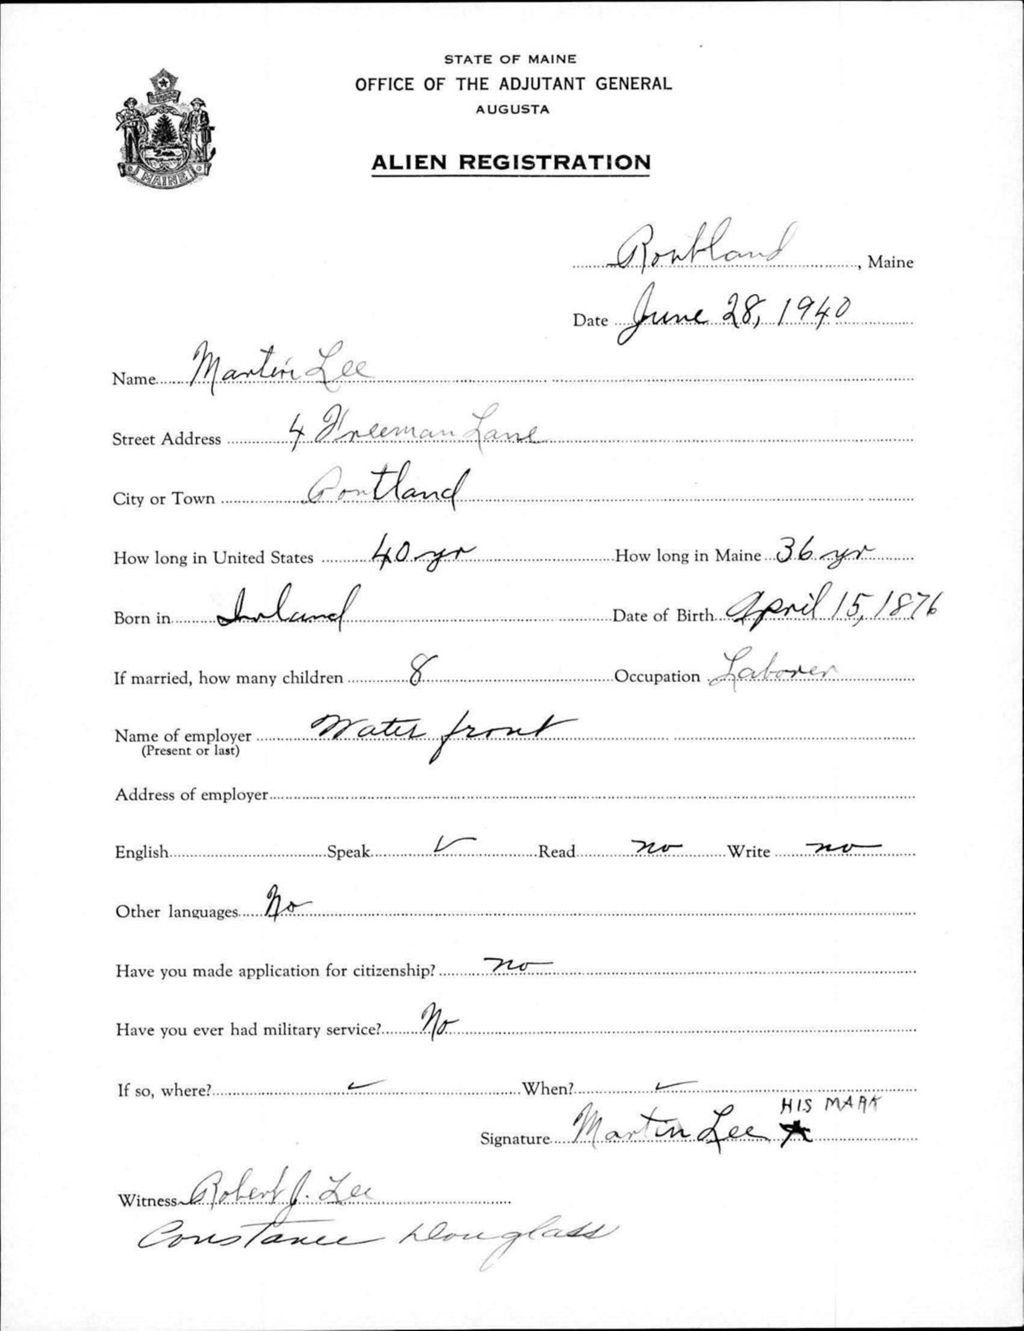 STATE OF MAINE
OFFICE OF THE ADJUTANT GENERAL
AUGUSTA
ALIEN REGISTRATION
MAINE
Portland, Maine
Date June 28, 1940
Name Martin Lee
Street Address 4 Freeman Lane
City or Town Portland
How long in United States 40 yr How long in Maine 36 yr
Born in Irland Date of Birth April 15, 1876
If married, how many children 8 Occupation Laborer
Name of employer Water front
(Present or last)
Address of employer
English Speak ✓ Read no Write no
Other languages No
Have you made application for citizenship? no
Have you ever had military service? No
If so, where? ✓ When? ✓
HIS MARK
Signature Martin Lee X
Witness Robert J. Lee
Constance Douglass